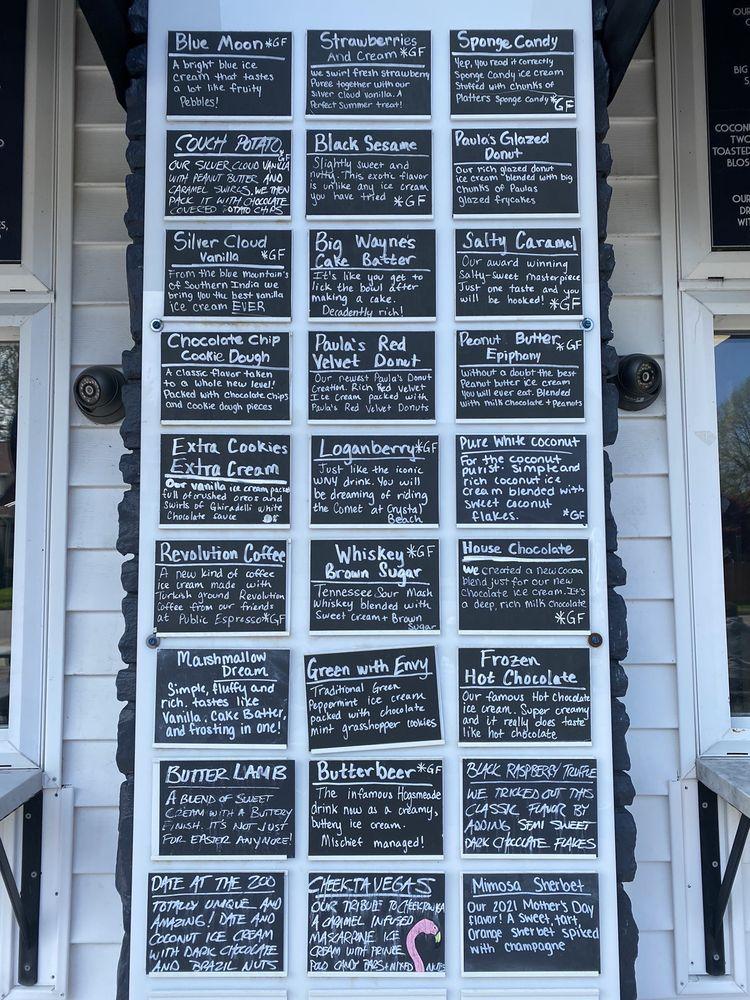 Blue Moon *GF
A bright blue ice
cream that tastes
a lot like fruity
Pebbles!
Strawberries
And Cream *GF
we swirl fresh strawberry
Puree together with our
Silver cloud vanilla. A
Perfect Summer treat!
Sponge Candy
Yep, you read it correctly
Sponge Candy ice cream
Stuffed with chunks of
Platters Sponge candy *GF
COUCH POTATO
GF
OUR SILVER CLOUD VANILLA
WITH PEANUT BUTTER AND
CARAMEL SWIRLS, WE THEN
PACK IT WITH CHOCOLATE
COVERED POTATO CHIPS
Black Sesame
Slightly sweet and
nutty. This exotic flavor
is unlike any ice cream
you have tried *GF
Paula's Glazed
Donut
Our rich glazed donut
ice cream blended with big
chunks of Paulas
glazed frycakes
Silver Cloud
Vanilla *GF
From the blue Mountain's
of Southern India we
bring you the best vanilla
ice cream EVER
Big Wayne's
Cake Batter
It's like you get to
lick the bowl after
making a cake.
Decadently rich!
Salty Caramel
Our award winning
Salty-Sweet masterpiece
Just one taste and you
will be hooked! *GF
Chocolate Chip
Cookie Dough
A classic flavor taken
to a whole new level!
Packed with chocolate chips
and cookie dough pieces
Paula's Red
Velvet Donut
Our newest Paula's Donut
Creation. Rich Red Velvet
Ice Cream packed with
Paula's Red Velvet Donuts
Peanut Butter *GF
Epiphany
Without a doubt the best
Peanut butter ice cream
you will ever eat. Blended
with milk chocolate + Peanuts
Extra Cookies
Extra Cream
Our vanilla ice cream pack
full of crushed oreos and
Swirls of Ghiradelli white
Chocolate sauce
Loganberry *GF
Just like the iconic
WNY drink. You will
be dreaming of riding
the Comet at Crystal
Beach
Pure White Coconut
For the coconut
purist. Simple and
rich coconut ice
cream blended with
sweet coconut
flakes. *GF
Revolution Coffee
A new kind of coffee
ice cream made with
Turkish ground Revolution
Coffee from our friends
at Public Espresso *GF
Whiskey *GF
Brown Sugar
Tennessee Sour Mash
Whiskey blended with
Sweet cream + Brown
Sugar
House Chocolate
We created a new cocoa
blend just for our new
chocolate ice cream. It's
a deep, rich milk chocolate
*GF
Marshmallow
Dream
Simple, fluffy and
rich. tastes like
Vanilla, Cake Batter,
and frosting in one!
Green with Envy
Traditional Green
Peppermint ice cream
packed with chocolate
mint grasshopper cookies
Frozen
Hot Chocolate
Our famous Hot Chocolate
ice cream. Super creamy
and it really does taste
like hot chocolate
BUTTER LAMB
A BLEND OF SWEET
CREAM WITH A BUTTERY
FINISH. IT'S NOT JUST
FOR EASTER ANYMORE!
Butterbeer *GF
The infamous Hogsmeade
drink now as a creamy,
buttery ice cream.
Mischief managed!
BLACK RASPBERRY TRUFFLE
WE TRICKED OUT THIS
CLASSIC FLAVOR BY
ADDING SEMI SWEET
DARK CHOCOLATE FLAKES
DATE AT THE ZOO
TOTALLY UNIQUE AND
AMAZING! DATE AND
COCONUT ICE CREAM
WITH DARK CHOCOLATE
AND BRAZIL NUTS
CHEEKTAVEGAS
OUR TRIBUTE TO CHEEKTOWAGA
A CARAMEL INFUSED
MASCARPONE ICE
CREAM WITH PRINCE
POLO CANDY BARS + MIXED NUTS
Mimosa Sherbet
Our 2021 Mother's Day
flavor! A sweet, tart,
Orange sherbet spiked
with champagne
BIG
COCONU
TWO
TOASTED
BLOS
OUR